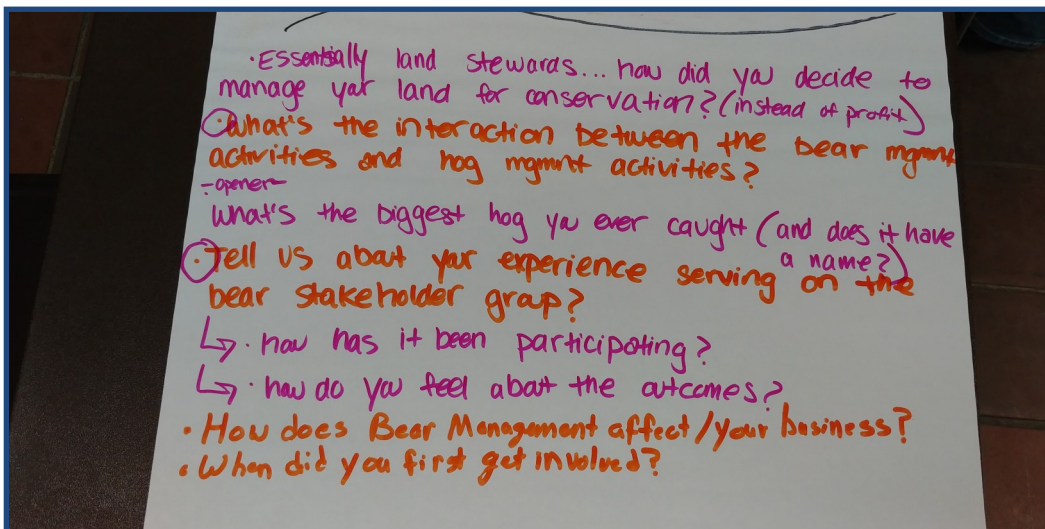 · Essentially land stewards... how did you decide to
manage your land for conservation? (instead of profit)
· What's the interaction between the bear mgmnt
activities and hog mgmnt activities?
- opener -
What's the biggest hog you ever caught (and does it have
a name?)
· Tell us about your experience serving on the
bear stakeholder group?
↳ · how has it been participating?
↳ · how do you feel about the outcomes?
· How does Bear Management affect/your business?
· When did you first get involved?